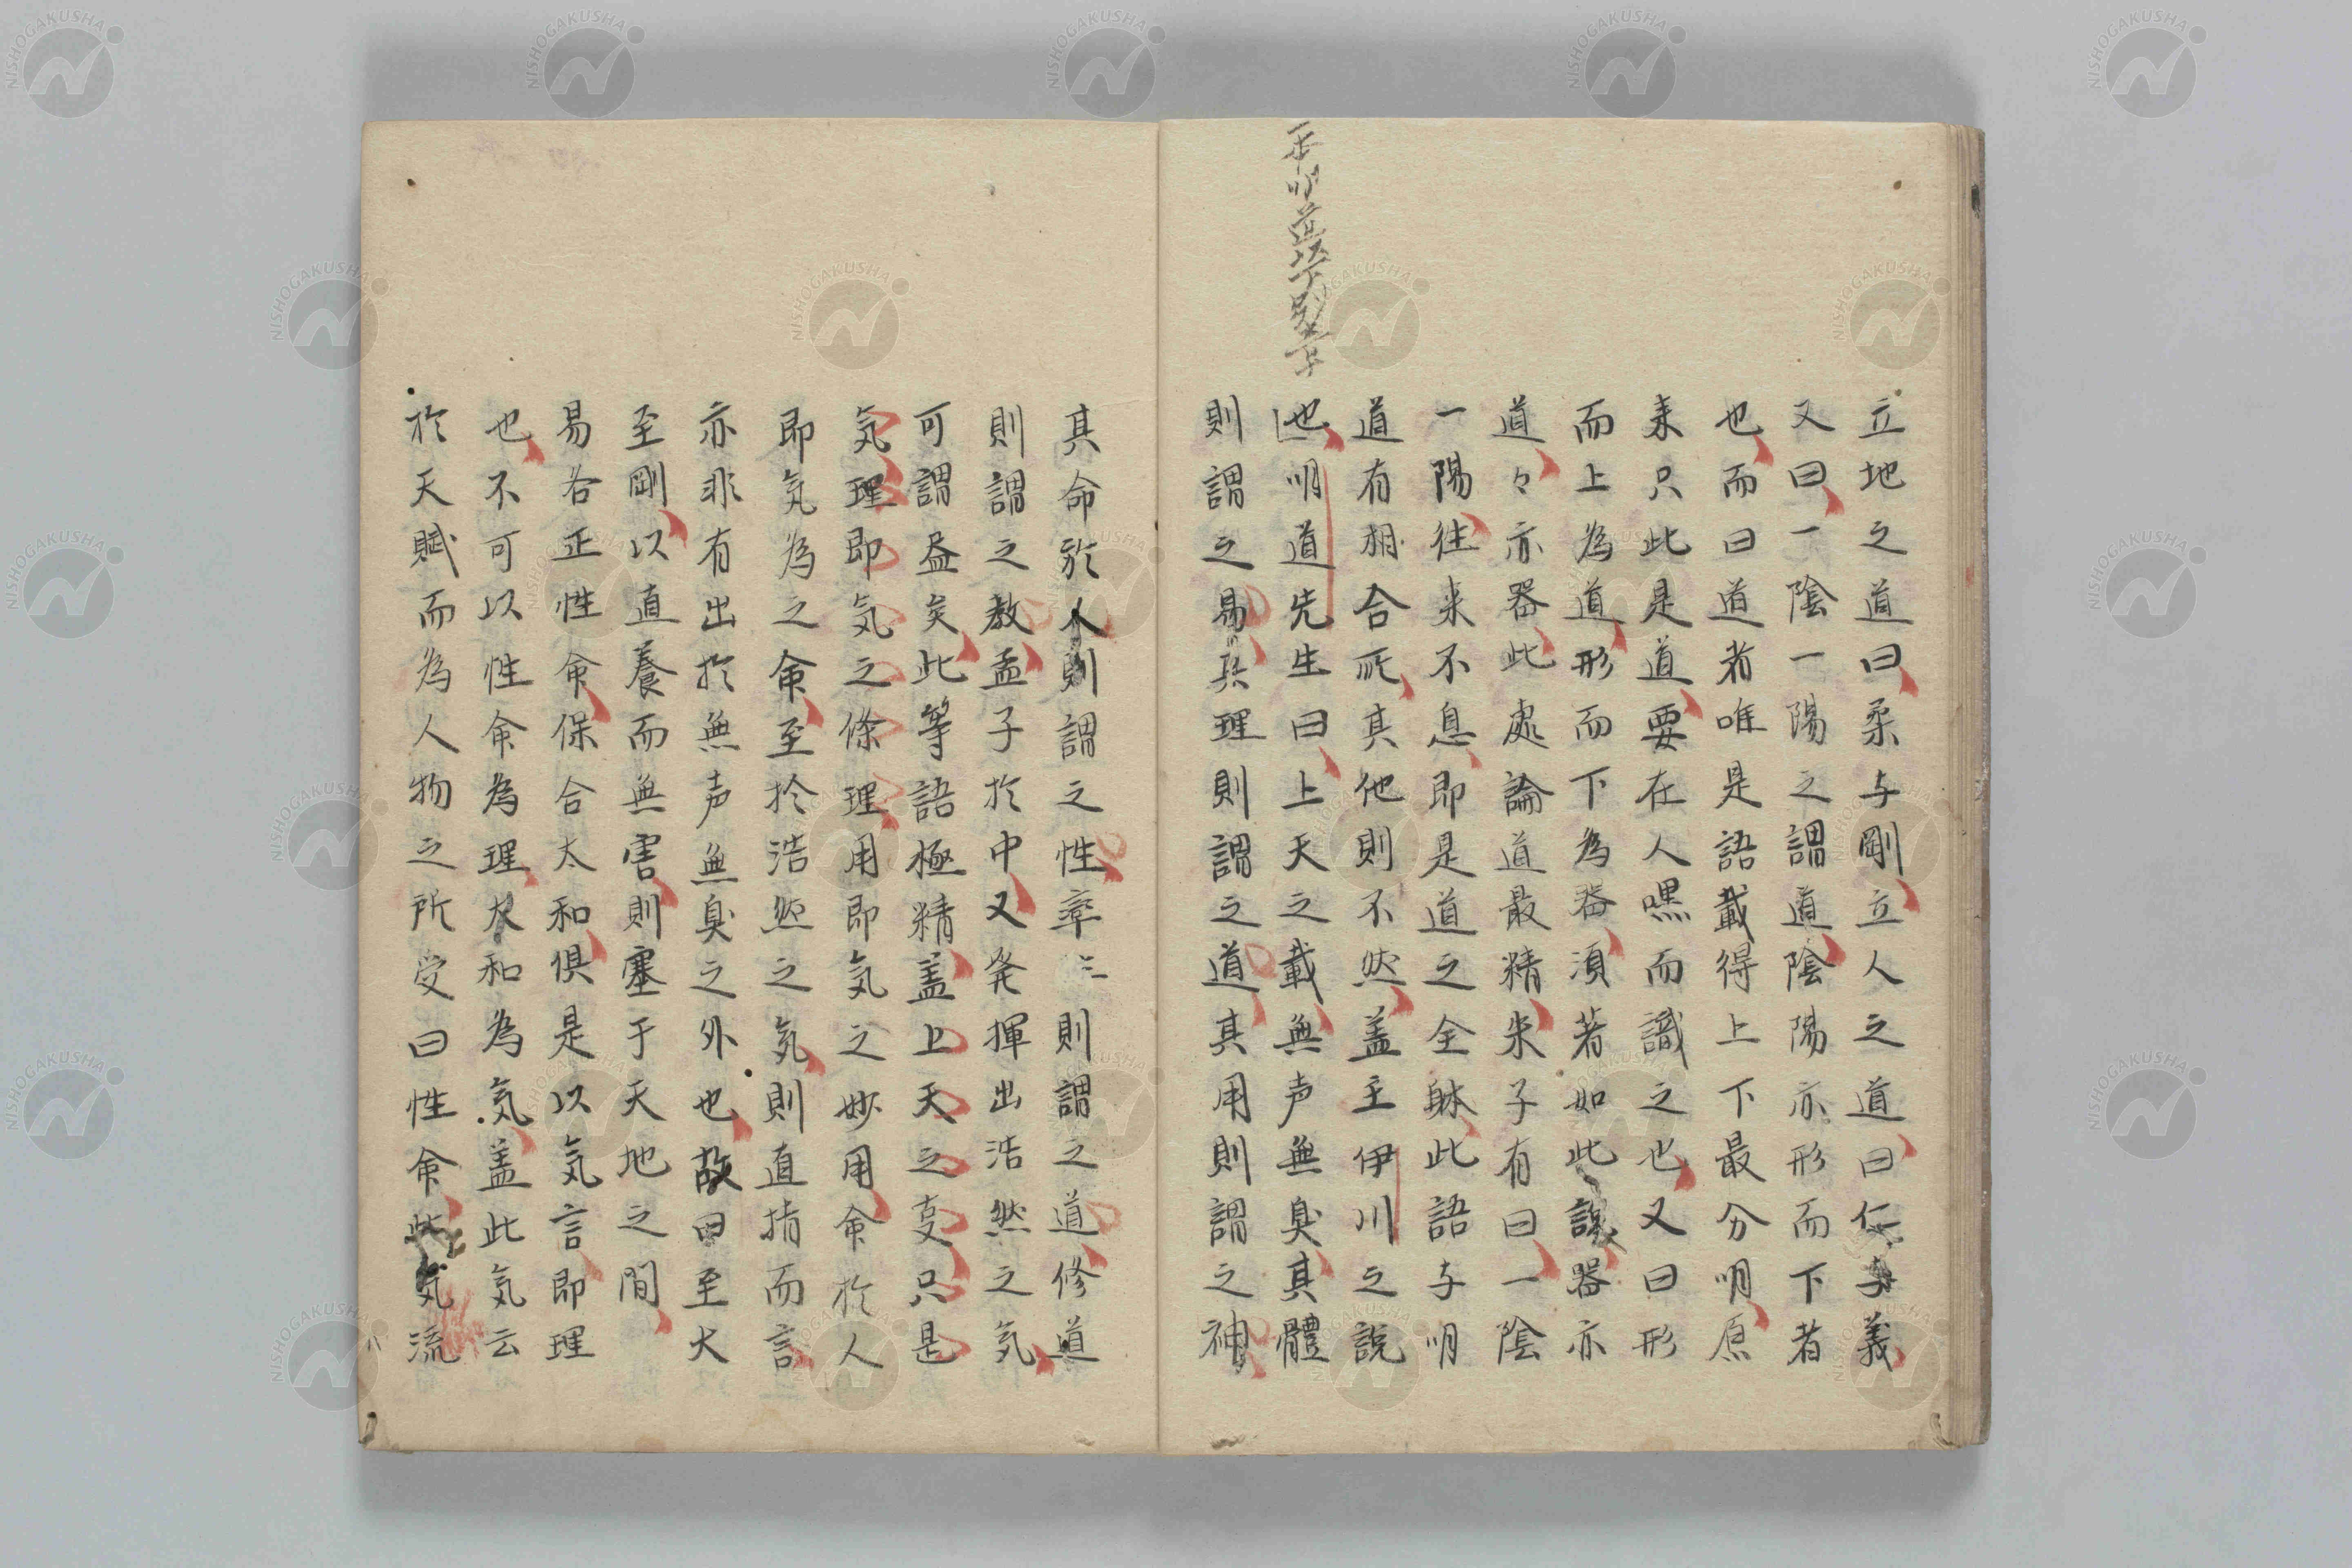 立地之道曰柔与剛立人之道曰仁与義
又曰一陰一陽之謂道陰陽亦形而下者
也而曰道者唯是語截得上下最分明原
来只此是道要在人嘿而識之也又曰形
而上為道形而下為器須著如此說器亦
道々亦器此處論道最精朱子有曰一陰
一陽往来不息即是道之全躰此語与明
道有相合処其他則不然盖主伊川之説
也明道先生曰上天之載無声無臭其體
則謂之易其理則謂之道其用則謂之神
其命於人則謂之性率之則謂之道修道
則謂之教孟子於中又発揮出浩然之気
可謂盡矣此等語極精盖上天之支只是
気理即気之條理用即気之妙用命於人
即気為之命至於浩然之気則直指而言
亦非有出於無声無臭之外也故曰至大
至剛以直養而無害則塞于天地之間
易各正性命保合太和俱是以気言即理
也不可以性命為理太和為気盖此気云
於天賦而為人物之所受曰性命此気流
NISHOGAKUSHA